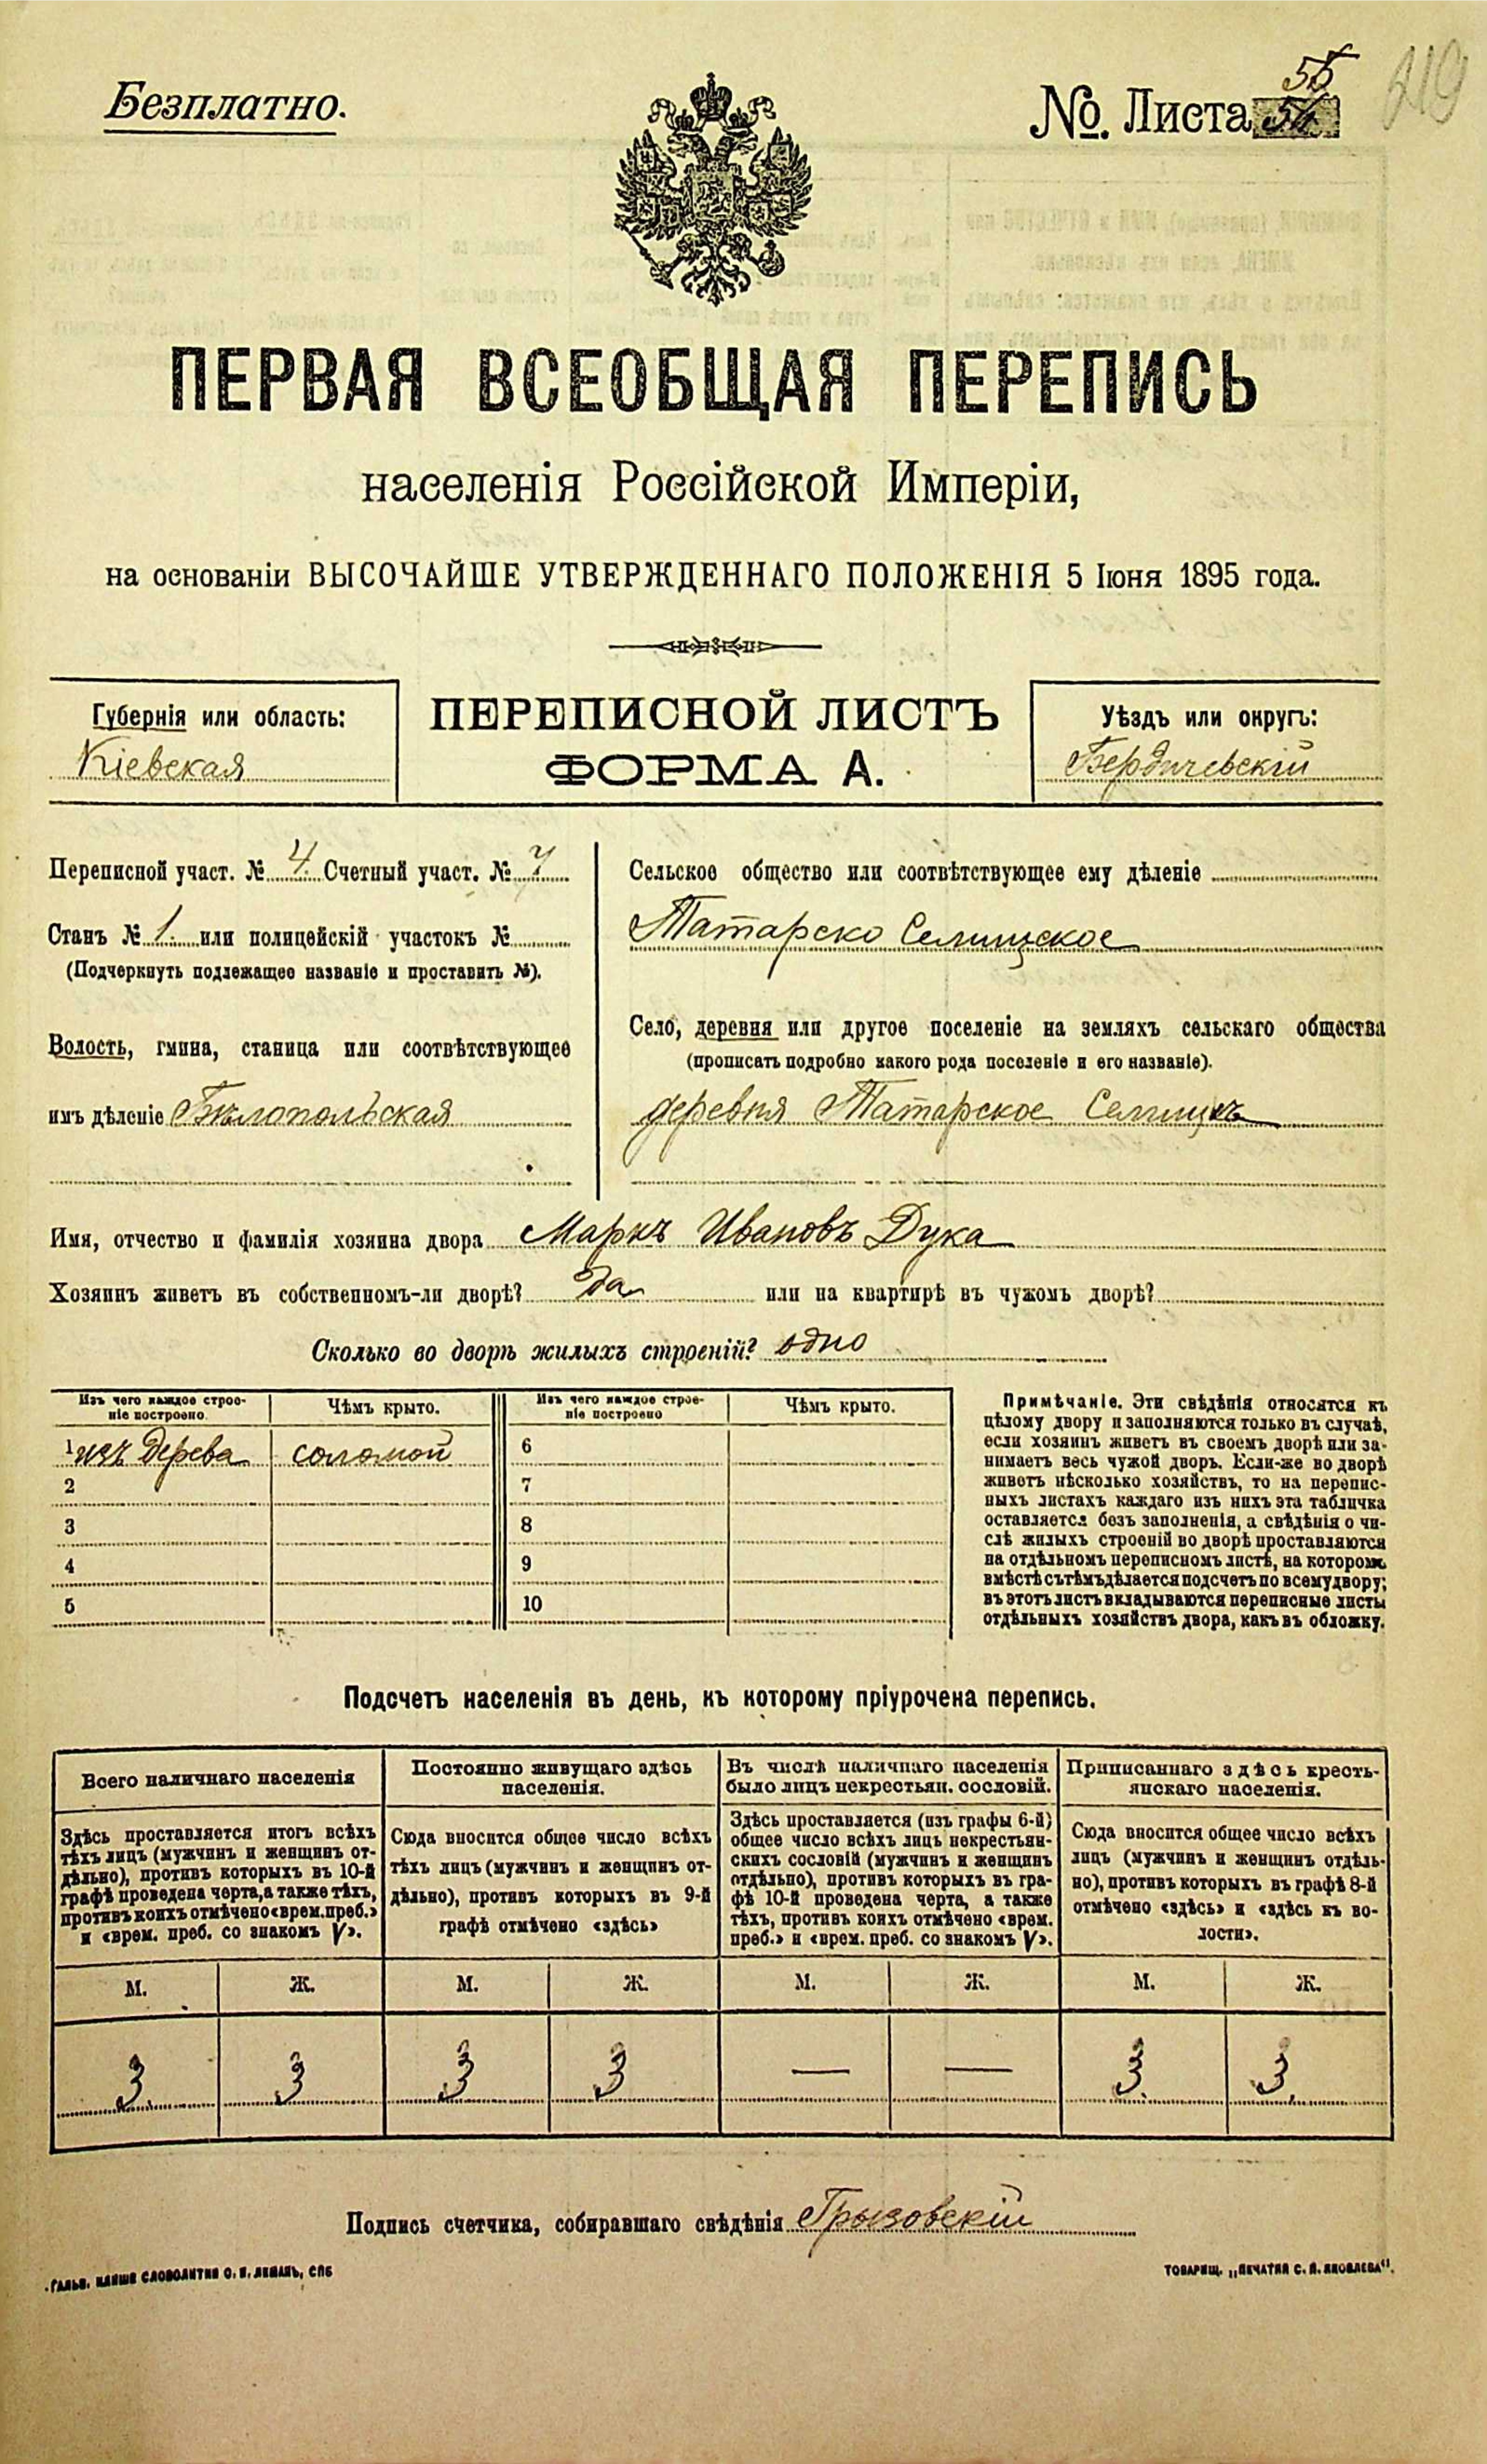 Безплатно.
№. Листа 55
54
219
ПЕРВАЯ ВСЕОБЩАЯ ПЕРЕПИСЬ
населенія Россійской Имперіи,
на основаніи ВЫСОЧАЙШЕ УТВЕРЖДЕННАГО ПОЛОЖЕНІЯ 5 Іюня 1895 года.
Губернія или область:
Кіевская
ПЕРЕПИСНОЙ ЛИСТЪ
ФОРМА А.
Уѣздъ или округъ:
Бердичевскій
Переписной участ. № 4. Счетный участ. № 7
Станъ № 1. или полицейскій участокъ №
(Подчеркнуть подлежащее названіе и проставить №).
Волость, гмина, станица или соотвѣтствующее
имъ дѣленіе Бѣлопольская
Сельское общество или соотвѣтствующее ему дѣленіе
Татарско Селищское
Село, деревня или другое поселеніе на земляхъ сельскаго общества
(прописать подробно какого рода поселеніе и его названіе).
деревня Татарское Селище
Имя, отчество и фамилія хозяина двора Маркъ Ивановъ Дука
Хозяинъ живетъ въ собственномъ-ли дворѣ? да или на квартирѣ въ чужомъ дворѣ?
Сколько во дворѣ жилыхъ строеній? одно
Изъ чего каждое строе-
ніе построено.
Чѣмъ крыто.
Изъ чего каждое строе-
ніе построено
Чѣмъ крыто.
1 изъ дерева соломой 6
2 7
3 8
4 9
5 10
Примѣчаніе. Эти свѣдѣнія относятся къ
цѣлому двору и заполняются только въ случаѣ,
если хозяинъ живетъ въ своемъ дворѣ или за-
нимаетъ весь чужой дворъ. Если-же во дворѣ
живетъ нѣсколько хозяйствъ, то на перепис-
ныхъ листахъ каждаго изъ нихъ эта табличка
оставляется безъ заполненія, а свѣдѣнія о чи-
слѣ жилыхъ строеній во дворѣ проставляются
на отдѣльномъ переписномъ листѣ, на которомъ
вмѣстѣ съ тѣмъ дѣлается подсчетъ по всему двору;
въ этотъ листъ вкладываются переписные листы
отдѣльныхъ хозяйствъ двора, какъ въ обложку.
Подсчетъ населенія въ день, къ которому пріурочена перепись.
Всего наличнаго населенія
Здѣсь проставляется итогъ всѣхъ
тѣхъ лицъ (мужчинъ и женщинъ от-
дѣльно), противъ которыхъ въ 10-й
графѣ проведена черта, а также тѣхъ,
противъ коихъ отмѣчено «врем. преб.»
и «врем. преб. со знакомъ V».
Постоянно живущаго здѣсь
населенія.
Сюда вносится общее число всѣхъ
тѣхъ лицъ (мужчинъ и женщинъ от-
дѣльно), противъ которыхъ въ 9-й
графѣ отмѣчено «здѣсь»
Въ числѣ наличнаго населенія
было лицъ некрестьян. сословій.
Здѣсь проставляется (изъ графы 6-й)
общее число всѣхъ лицъ некрестьян-
скихъ сословій (мужчинъ и женщинъ
отдѣльно), противъ которыхъ въ гра-
фѣ 10-й проведена черта, а также
тѣхъ, противъ коихъ отмѣчено «врем.
преб.» и «врем. преб. со знакомъ V».
Приписаннаго здѣсь кресть-
янскаго населенія.
Сюда вносится общее число всѣхъ
лицъ (мужчинъ и женщинъ отдѣль-
но), противъ которыхъ въ графѣ 8-й
отмѣчено «здѣсь» и «здѣсь къ во-
лости».
М. Ж. М. Ж. М. Ж. М. Ж.
3 3 3 3 — — 3. 3.
Подпись счетчика, собиравшаго свѣдѣнія Грызовскій
Гальв. клише словолитни О. И. Леманъ, СПБ
Товарищ. „Печатня С. П. Яковлева".